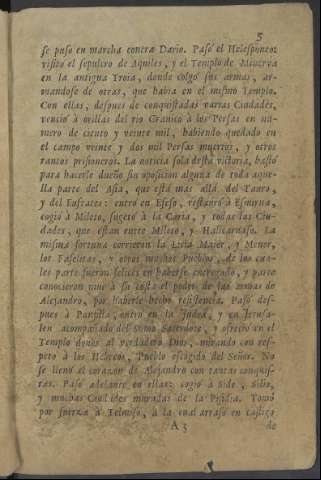 5
se puso en marcha contra Dario. Pasó el Helesponto:
visitó el sepulcro de Aquiles, y el Templo de Minerva
en la antigua Troia, donde colgó sus armas, ar-
mandose de otras, que habia en el mismo Templo.
Con ellas, despues de conquistadas varias Ciudades,
venció à orillas del rio Granico à los Persas en nu-
mero de ciento y veinte mil, habiendo quedado en
el campo veinte y dos mil Persas muertos, y otros
tantos prisioneros. La noticia sola desta victoria, bastó
para hacerle dueño sin oposicion alguna de toda aque-
lla parte del Asia, que está mas allá del Tauro,
y del Eufrates: entró en Efeso, restauró à Esmirna,
cogió à Mileto, sugetó à la Caria, y todas las Ciu-
dades, que estan entre Mileto, y Halicarnaso. La
misma fortuna corrieron la Licia Maior, y Menor,
los Faselitas, y otros muchos Pueblos, de los cua-
les parte fueron felices en haberse entregado, y parte
conocieron mui à su costa el poder de las armas de
Alejandro, por haberle hecho resistencia. Pasó des-
pues à Panfilia, entró en la Judea, y en Jerusa-
len acompañado del Sumo Sacerdote, y ofreció en el
Templo dones al verdadero Dios, mirando con res-
peto à los Hebreos, Pueblo escogido del Señor. No
se llenó el corazon de Alejandro con tantas conquis-
tas. Pasó adelante en ellas: cogió à Side, Silio,
y muchas Ciudades muradas de la Pisidia. Tomó
por fuerza à Telmiso, à la cual arrasó en castigo
A 3 de